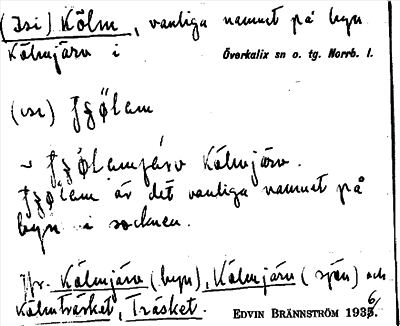 (isi) Kölm, vanliga namnet på byn
Kölmjärv i Överkalix sn o. tg. Norrb. l.
(isi)
~ Kölmjärv.
är det vanliga namnet på
byn i socknen.
Jfr. Kölmjärv (byn), Kölmjärv (sjön) och
Kölmträsket, Träsket. EDVIN BRÄNNSTRÖM 1935 6/